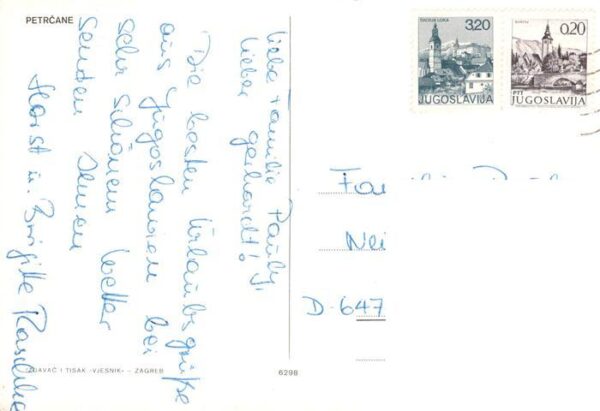 PETRČANE
Liebe Familie Pauly,
lieber Gerhardt!
Die besten Urlaubsgrüße
aus Jugoslawien bei
sehr schönem Wetter
senden Ihnen
Horst u. Brigitte
ŠKOFJA LOKA
3.20
JUGOSLAVIJA
BOHINJ
0.20
PTT
JUGOSLAVIJA
Fa
Nei
D-647
IZDAVAČ I TISAK »VJESNIK« – ZAGREB
6298